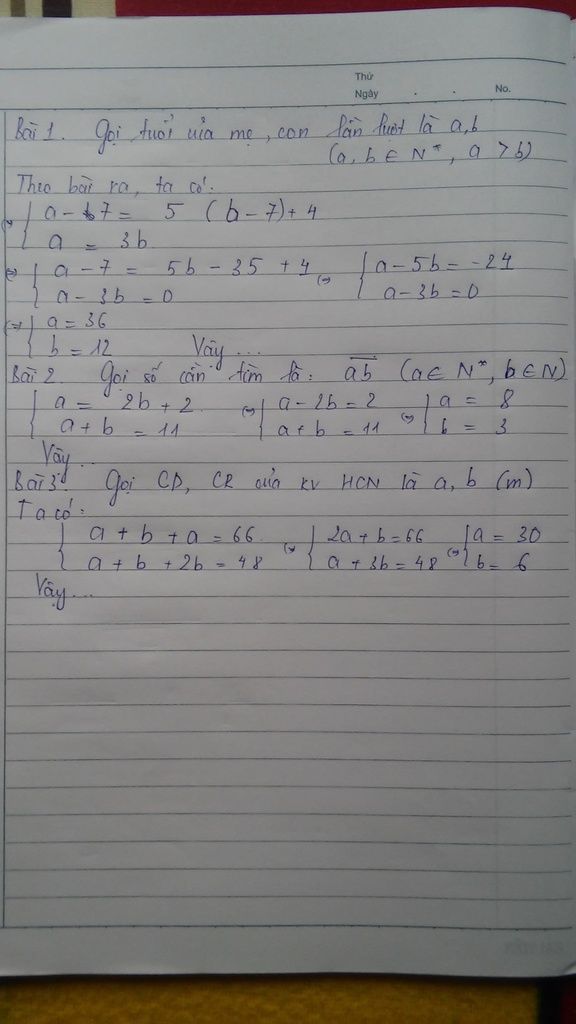 Thứ
Ngày . . No.
Bài 1. Gọi tuổi của mẹ, con lần lượt là a, b
(a, b ∈ N*, a > b)
Theo bài ra, ta có:
(=) { a - 7 = 5 (b - 7) + 4
a = 3b
(=) { a - 7 = 5b - 35 + 4 (=) { a - 5b = -24
a - 3b = 0 a - 3b = 0
(=) { a = 36
b = 12 Vậy ...
Bài 2. Gọi số cần tìm là: ab (a ∈ N*, b ∈ N)
{ a = 2b + 2 (=) { a - 2b = 2 (=) { a = 8
a + b = 11 a + b = 11 b = 3
Vậy ...
Bài 3. Gọi CD, CR của KV HCN là a, b (m)
Ta có:
{ a + b + a = 66 (=) { 2a + b = 66 (=) { a = 30
a + b + 2b = 48 a + 3b = 48 b = 6
Vậy ...